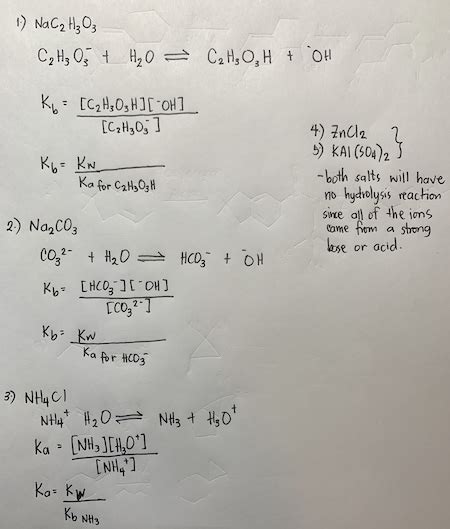 1.) NaC₂H₃O₃
C₂H₃O₃⁻ + H₂O ⇌ C₂H₃O₃H + ⁻OH
K_b = [C₂H₃O₃H][⁻OH] / [C₂H₃O₃⁻]
K_b = Kw / Ka for C₂H₃O₃H
2.) Na₂CO₃
CO₃²⁻ + H₂O ⇌ HCO₃⁻ + ⁻OH
K_b = [HCO₃⁻][⁻OH] / [CO₃²⁻]
K_b = Kw / Ka for HCO₃⁻
3) NH₄Cl
NH₄⁺ H₂O ⇌ NH₃ + H₃O⁺
Ka = [NH₃][H₃O⁺] / [NH₄⁺]
Ka = Kw / Kb NH₃
4) ZnCl₂
5) KAl(SO₄)₂
- both salts will have
no hydrolysis reaction
since all of the ions
came from a strong
base or acid.